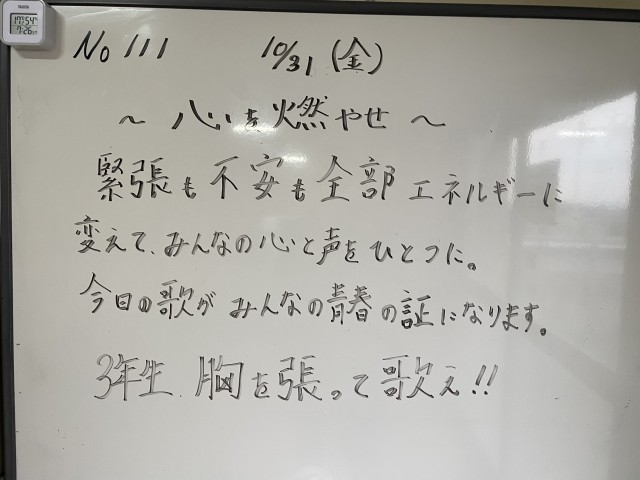 No 111 10/31 (金)
～ 心を燃やせ ～
緊張も不安も全部エネルギーに
変えて、みんなの心と声をひとつに。
今日の歌がみんなの青春の証になります。
3年生 胸を張って歌え!!